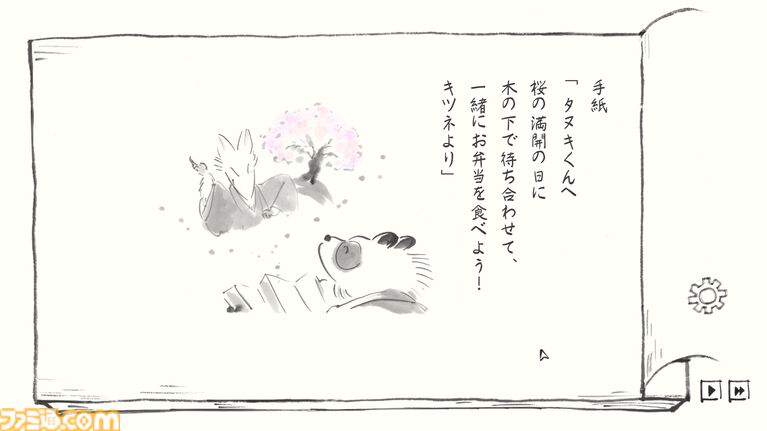 手紙
「タヌキくんへ
桜の満開の日に
木の下で待ち合わせて、
一緒にお弁当を食べよう！
キツネより」
ファミ通.com